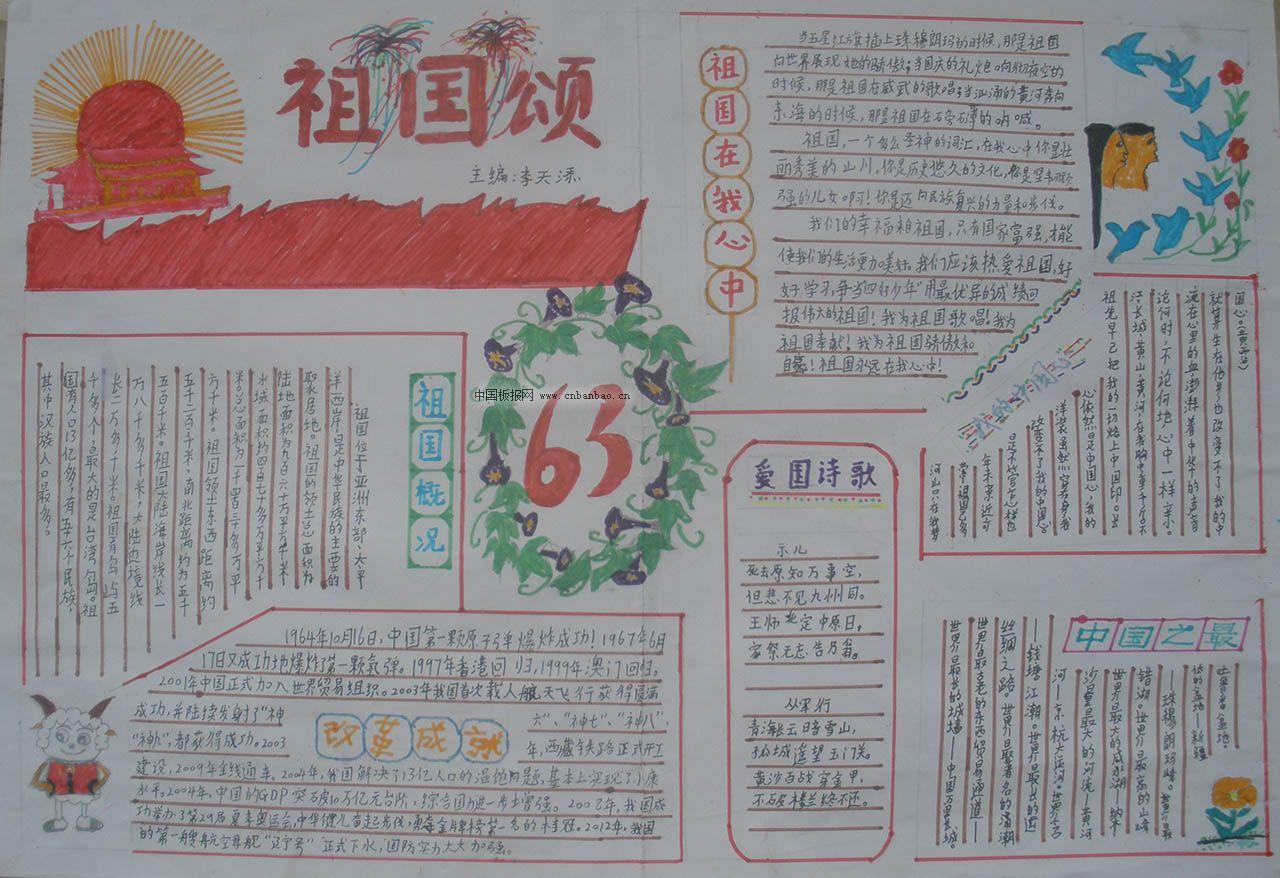 祖国颂
主编:李天添
祖国在我心中
当五星红旗插上珠穆朗玛的时候,那是祖国
向世界展现她的骄傲;当国庆的礼炮响彻夜空的
时候,那是祖国在威武的歌唱;当汹涌的黄河奔向
东海的时候,那是祖国在
祖国,一个多么圣神的词汇,在我心中你是壮
丽秀美的山川,你是历史悠久的文化,你是坚韧顽
强的儿女啊!你是迈向民族复兴的力量和步伐。
我们的幸福和祖国,只有国家富强,才能
使我们的生活更加美好。我们应该热爱祖国,好
好学习,争当“四好少年”用最优异的成绩回
报伟大的祖国!我为祖国歌唱!我为
祖国奉献!我为祖国骄傲和
自豪!祖国永远在我心中!
祖国概况
祖国位于亚洲东部、太平
洋西岸,是中华民族的主要的
聚居地。祖国的领土总面积为
陆地面积为九百六十万平方千米
水域面积约四百七十多万平方千
米。总面积为一千四三十多万平
方千米。祖国领土东西距离约
五千二百千米,南北距离约为五千
五百千米。祖国大陆海岸线长一
万八千多千米,大陆边境线
长二万多千米。祖国有岛屿五
千多个,最大的是台湾岛。祖
国有人口13亿多,有五十六个民族,
其中汉族人口最多。
63
中国板报网
www.cnbanbao.cn
我的中国心
河山只在我梦
萦,祖国已多
年未亲近,可
是不管怎样也
改变不了我的中国心
洋装虽然穿着身,我
心依然是中国心,我的
祖先早已把我的一切烙上中国印。长
江,长城,黄山,黄河,在我胸中重千斤。不
论何时,不论何地,心中一样亲。
流在心里的血,澎湃着中华的声音
就算生在他乡也改变不了我的中
国心。
爱国诗歌
示儿
死去原知万事空,
但悲不见九州同。
王师北定中原日,
家祭无忘告乃翁。
从军行
青海长云暗雪山,
孤城遥望玉门关。
黄沙百战穿金甲,
不破楼兰终不还。
改革成就
1964年10月16日,中国第一颗原子弹爆炸成功!1967年6月
17日又成功地爆炸了第一颗氢弹。1997年香港回归,1999年,澳门回归。
2001年中国正式加入世界贸易组织。2003年我国首次载人航天飞行获得圆满
成功,并陆续发射了“神
六”、“神七”、“神八”
“神九”,都获得成功。2003
年,西藏铁路正式开工
建设,2009年全线通车。2004年,我国解决了13亿人口的温饱问题,基本上实现了小康
水平。2004年,中国的GDP突破10万亿元台阶,综合国力进一步上增强。2008年,我国成
功举办了第29届夏季奥运会,中华健儿奋起发扬,勇夺金牌榜第一名的桂冠。2012年,我国
的第一艘航空母舰“辽宁号”正式下水,国防实力大大加强。
中国之最
吐鲁番盆地。
低的盆地—新疆
—珠穆朗玛峰。世界最
错湖。世界最高的山峰
世界最大的咸水湖—纳木
沙量最大的河流—黄河
河—京杭大运河。世界含
—钱塘江潮。世界最长的运
丝绸之路。世界最著名的涌潮
世界最古老的东西贸易通道—
世界最长的城墙—中国万里长城。